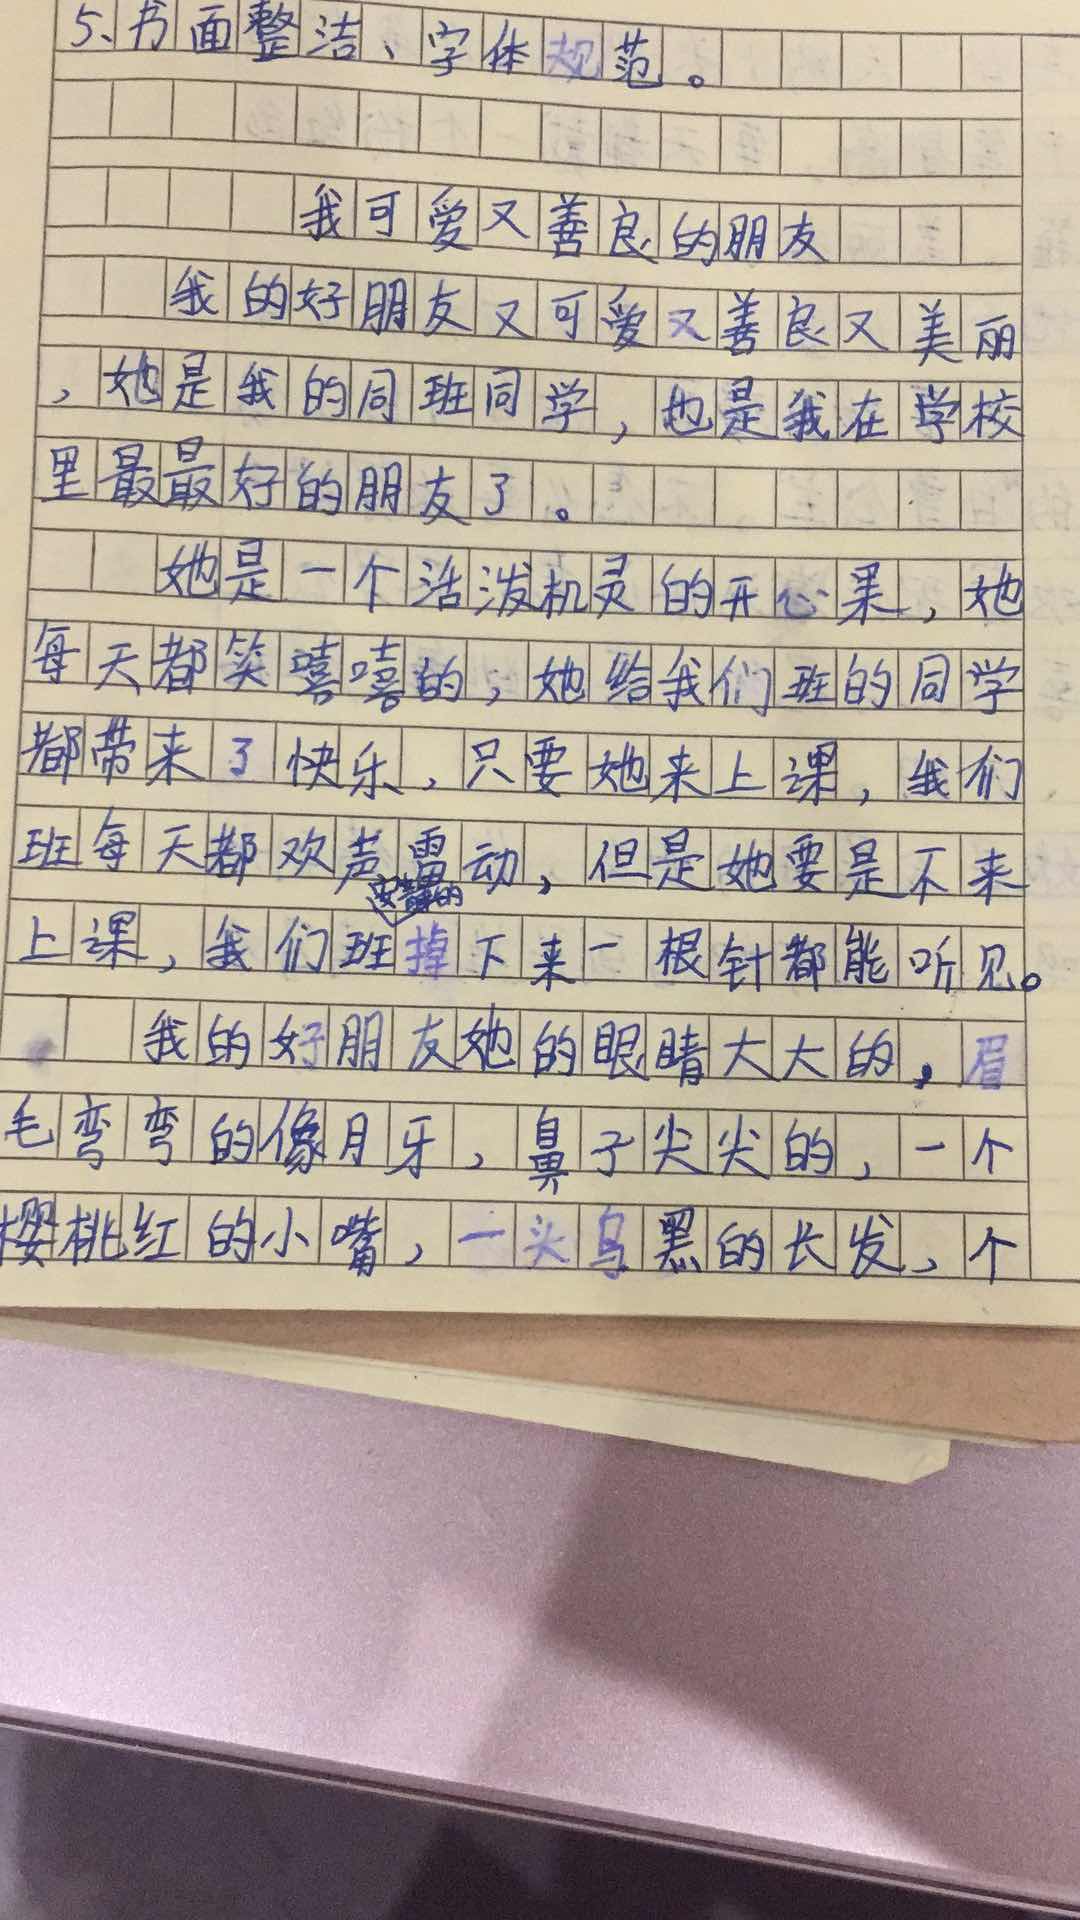 5、书面整洁、字体规范。
我可爱又善良的朋友
我的好朋友又可爱又善良又美丽
，她是我的同班同学，也是我在学校
里最最好的朋友了。
她是一个活泼机灵的开心果，她
每天都笑嘻嘻的，她给我们班的同学
都带来了快乐，只要她来上课，我们
班每天都欢声雷动，但是她要是不来
安静的
上课，我们班掉下来一根针都能听见。
我的好朋友她的眼睛大大的，眉
毛弯弯的像月牙，鼻子尖尖的，一个
樱桃红的小嘴，一头乌黑的长发，个